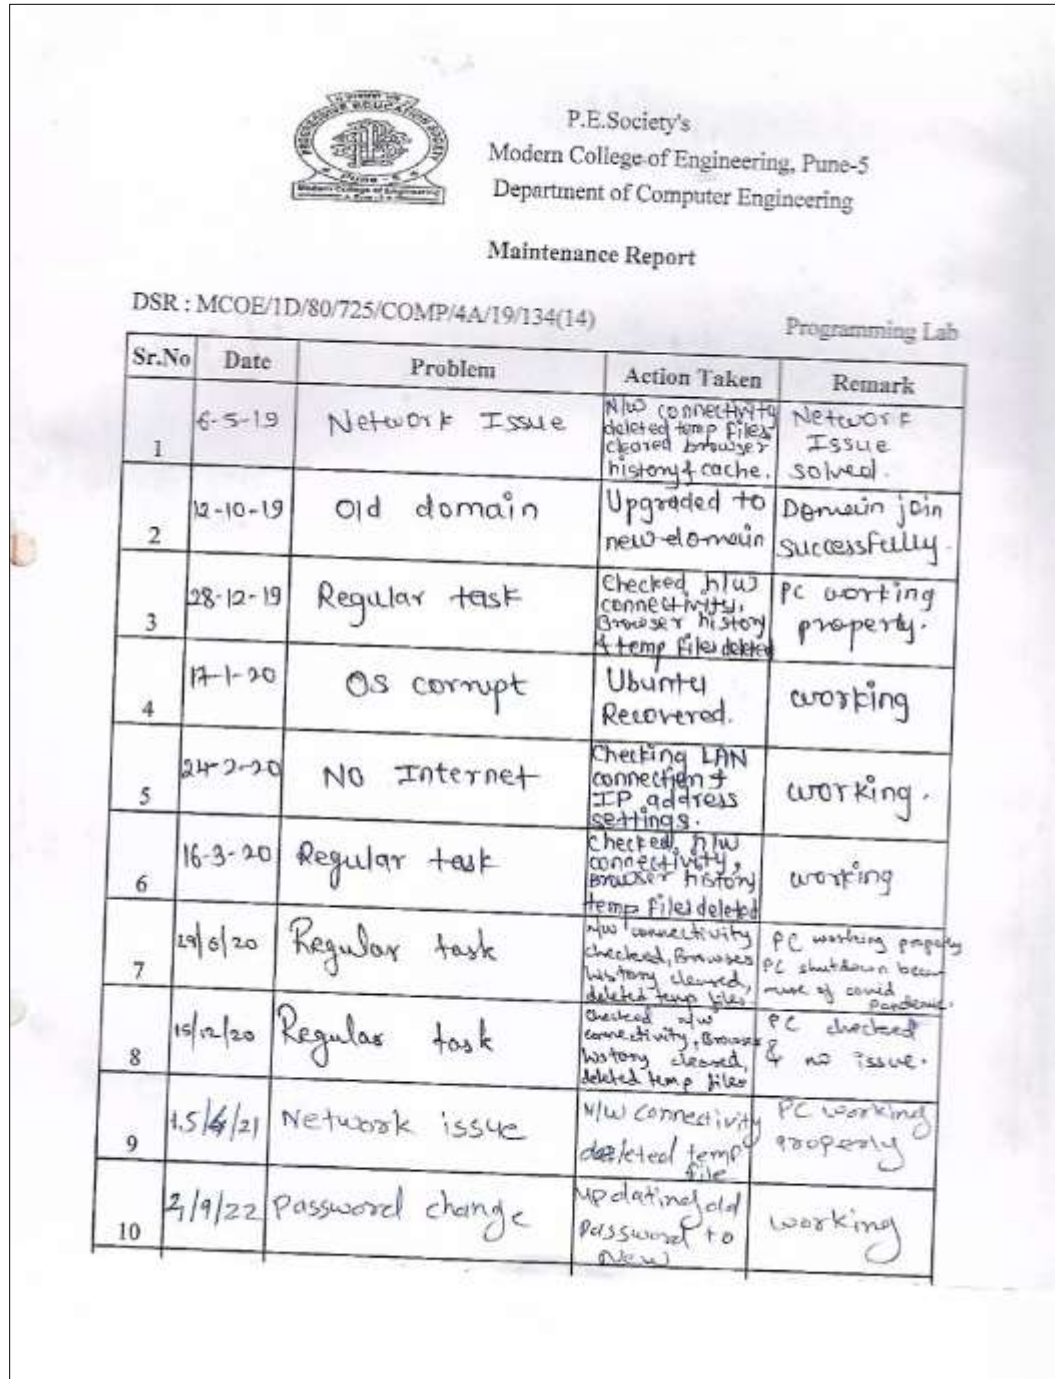 PROGRESSIVE EDUCATION SOCIETY
Modern College of Engineering
P.E.Society's
Modern College of Engineering, Pune-5
Department of Computer Engineering
Maintenance Report
DSR : MCOE/1D/80/725/COMP/4A/19/134(14)
Programming Lab
Sr.No Date Problem Action Taken Remark
1
6-5-19
Network Issue
N/W connectivity
deleted temp files
cleared browser
history & cache.
Network
Issue
solved.
2
12-10-19
Old domain
Upgraded to
new domain
Domain join
successfully.
3
28-12-19
Regular task
Checked n/w
connectivity,
Browser history
& temp files deleted
PC working
property.
4
17-1-20
OS corrupt
Ubuntu
Recovered.
working
5
24-2-20
NO Internet
Checking LAN
connection &
IP address
settings.
working.
6
16-3-20
Regular task
Checked n/w
connectivity,
Browser history
temp files deleted
working
7
/6/20
Regular task
N/W connectivity
checked, Browser
history cleared,
deleted temp files
PC working properly
PC shutdown beca-
use of covid
pandemic.
8
15/12/20
Regular task
Checked n/w
connectivity, Browser
history cleared,
deleted temp files
PC checked
& no issue.
9
15/4/21
Network issue
N/W connectivity
deleted temp
file
PC working
properly
10
/9/22
Password change
updating old
password to
New
working